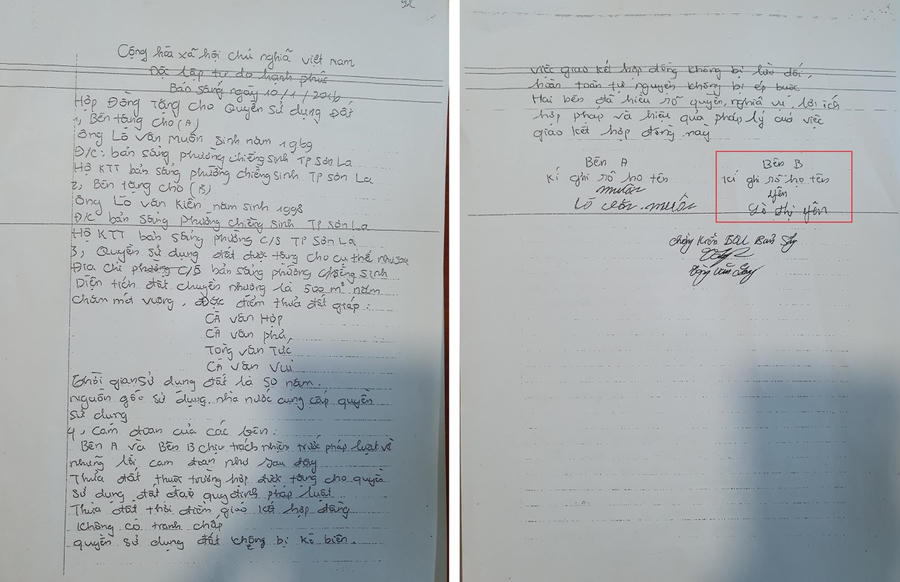 Cộng hòa xã hội chủ nghĩa việt nam
Độc lập tự do hạnh phúc
Bản sáng ngày 10/1/2016
Hợp Đồng Tặng cho Quyền Sử dụng Đất
1, Bên tặng cho (A)
Ông Lò văn muôn Sinh năm 1969
Đ/c: bản sáng phường chiềng sinh TP sơn La
Hộ KTT bản sáng phường chiềng sinh TP sơn La
2, Bên tặng cho (B)
Ông Lò văn Kiên năm sinh 1998
Đ/c bản sáng Phường chiềng sinh TP Sơn La
Hộ KTT bản sáng phường C/S TP Sơn La
3, Quyền sử dụng đất được tặng cho cụ thể như sau
Địa chỉ phường C/S bản sáng phường chiềng sinh
Diện tích đất chuyển nhượng là 500 m² năm
chăm mét vuông, Đặc điểm thửa đất giáp:
Cà văn Hợp
Cà văn phá,
Tòng văn Tức
Cà văn vui
Thời gian sử dụng đất là 50 năm.
nguồn gốc sử dụng nhà nước cung cấp quyền
sử dụng
4, Cam đoan của các bên.
Bên A và Bên B chịu trách nhiện trước pháp luật về
những lời cam đoan như sau đây
Thửa đất thuộc trường hợp được tặng cho quyền
sử dụng đất theo quy định pháp luật
Thửa đất thời điểm giao kết hợp đồng
không có tranh chấp
quyền sử dụng đất không bị kê biên.
việc giao kết hợp đồng không bị lừa dối,
hoàn toàn tự nguyện không bị ép buộc
Hai bên đã hiểu rõ quyền, nghĩa vụ lợi ích
hợp pháp và hiệu quả pháp lý của việc
giao kết hợp đồng này
Bên A
kí ghi rõ họ tên
muôn
Lò văn muôn
Bên B
kí ghi rõ họ tên
yên
Lò thị yên